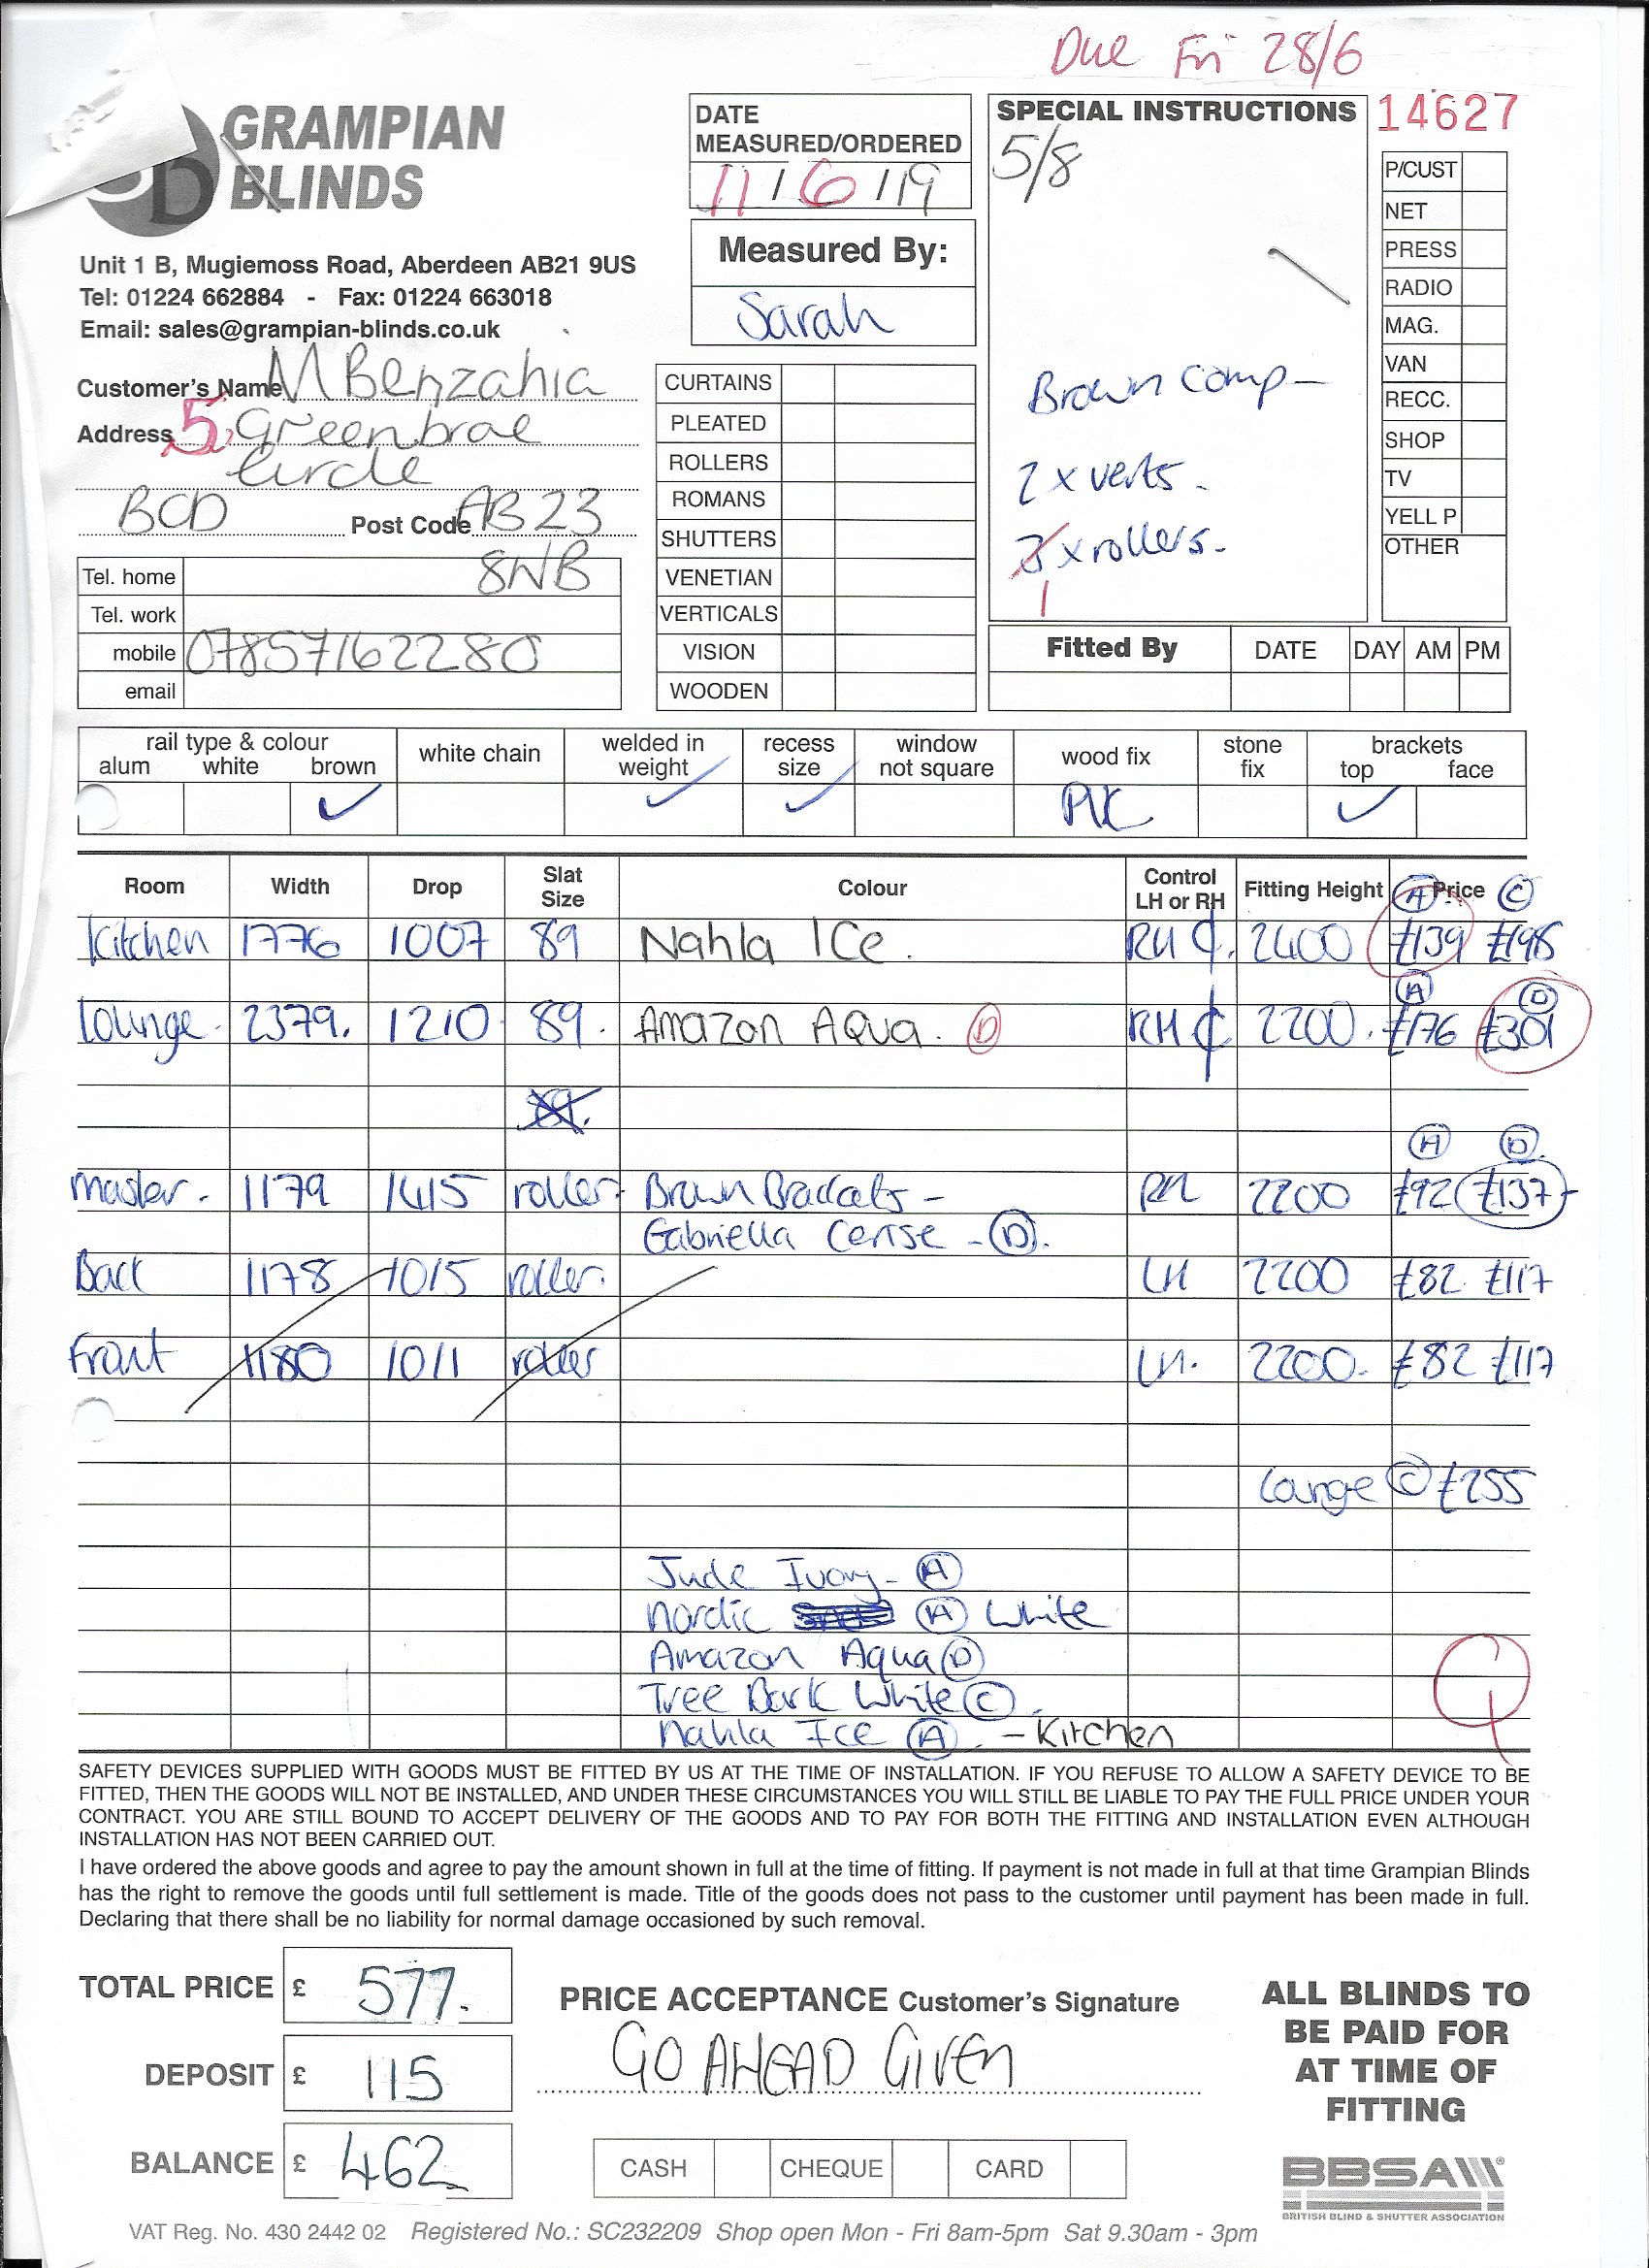 Due Fri 28/6
GRAMPIAN
BLINDS
Unit 1 B, Mugiemoss Road, Aberdeen AB21 9US
Tel: 01224 662884 - Fax: 01224 663018
Email: sales@grampian-blinds.co.uk
DATE
MEASURED/ORDERED
11/6/19
Measured By:
Sarah
SPECIAL INSTRUCTIONS
5/8
Brown comp -
2 x verts -
x rollers -
1
14627
P/CUST
NET
PRESS
RADIO
MAG.
VAN
RECC.
SHOP
TV
YELL P
OTHER
Customer's Name M Benzahia
Address 5, Greenbrae
Circle
BOD Post Code AB23
8WB
Tel. home
Tel. work
mobile 07857162280
email
CURTAINS
PLEATED
ROLLERS
ROMANS
SHUTTERS
VENETIAN
VERTICALS
VISION
WOODEN
Fitted By DATE DAY AM PM
rail type & colour
alum white brown
white chain
welded in
weight
recess
size
window
not square
wood fix
stone
fix
brackets
top face
PVC
Room Width Drop Slat Size Colour Control LH or RH Fitting Height Price
(A) (C)
Kitchen 1776 1007 89 Nahla ICE. RH ₵. 2400 £139 £198
(A) (D)
Lounge. 2379. 1210 89. AMAZON AQUA. (D) RH ₵ 2200. £176 £301
89.
(A) (D)
Master. 1179 1415 roller. Brown Brackets - RH 2200 £92 £137
Gabriella Cerise - (D).
Back 1178 1015 roller. LH 2200 £82 £117
Front 1180 1011 roller LH. 2200. £82 £117
Lounge (C) £255
Jude Ivory - (A)
Nordic (A) White
Amazon Aqua (D)
Tree Bark White (C).
Nahla Ice (A). - Kitchen
SAFETY DEVICES SUPPLIED WITH GOODS MUST BE FITTED BY US AT THE TIME OF INSTALLATION. IF YOU REFUSE TO ALLOW A SAFETY DEVICE TO BE
FITTED, THEN THE GOODS WILL NOT BE INSTALLED, AND UNDER THESE CIRCUMSTANCES YOU WILL STILL BE LIABLE TO PAY THE FULL PRICE UNDER YOUR
CONTRACT. YOU ARE STILL BOUND TO ACCEPT DELIVERY OF THE GOODS AND TO PAY FOR BOTH THE FITTING AND INSTALLATION EVEN ALTHOUGH
INSTALLATION HAS NOT BEEN CARRIED OUT.
I have ordered the above goods and agree to pay the amount shown in full at the time of fitting. If payment is not made in full at that time Grampian Blinds
has the right to remove the goods until full settlement is made. Title of the goods does not pass to the customer until payment has been made in full.
Declaring that there shall be no liability for normal damage occasioned by such removal.
TOTAL PRICE £ 577.
DEPOSIT £ 115
BALANCE £ 462
PRICE ACCEPTANCE Customer's Signature
GO AHEAD GIVEN
CASH CHEQUE CARD
ALL BLINDS TO
BE PAID FOR
AT TIME OF
FITTING
BBSA
BRITISH BLIND & SHUTTER ASSOCIATION
VAT Reg. No. 430 2442 02 Registered No.: SC232209 Shop open Mon - Fri 8am-5pm Sat 9.30am - 3pm